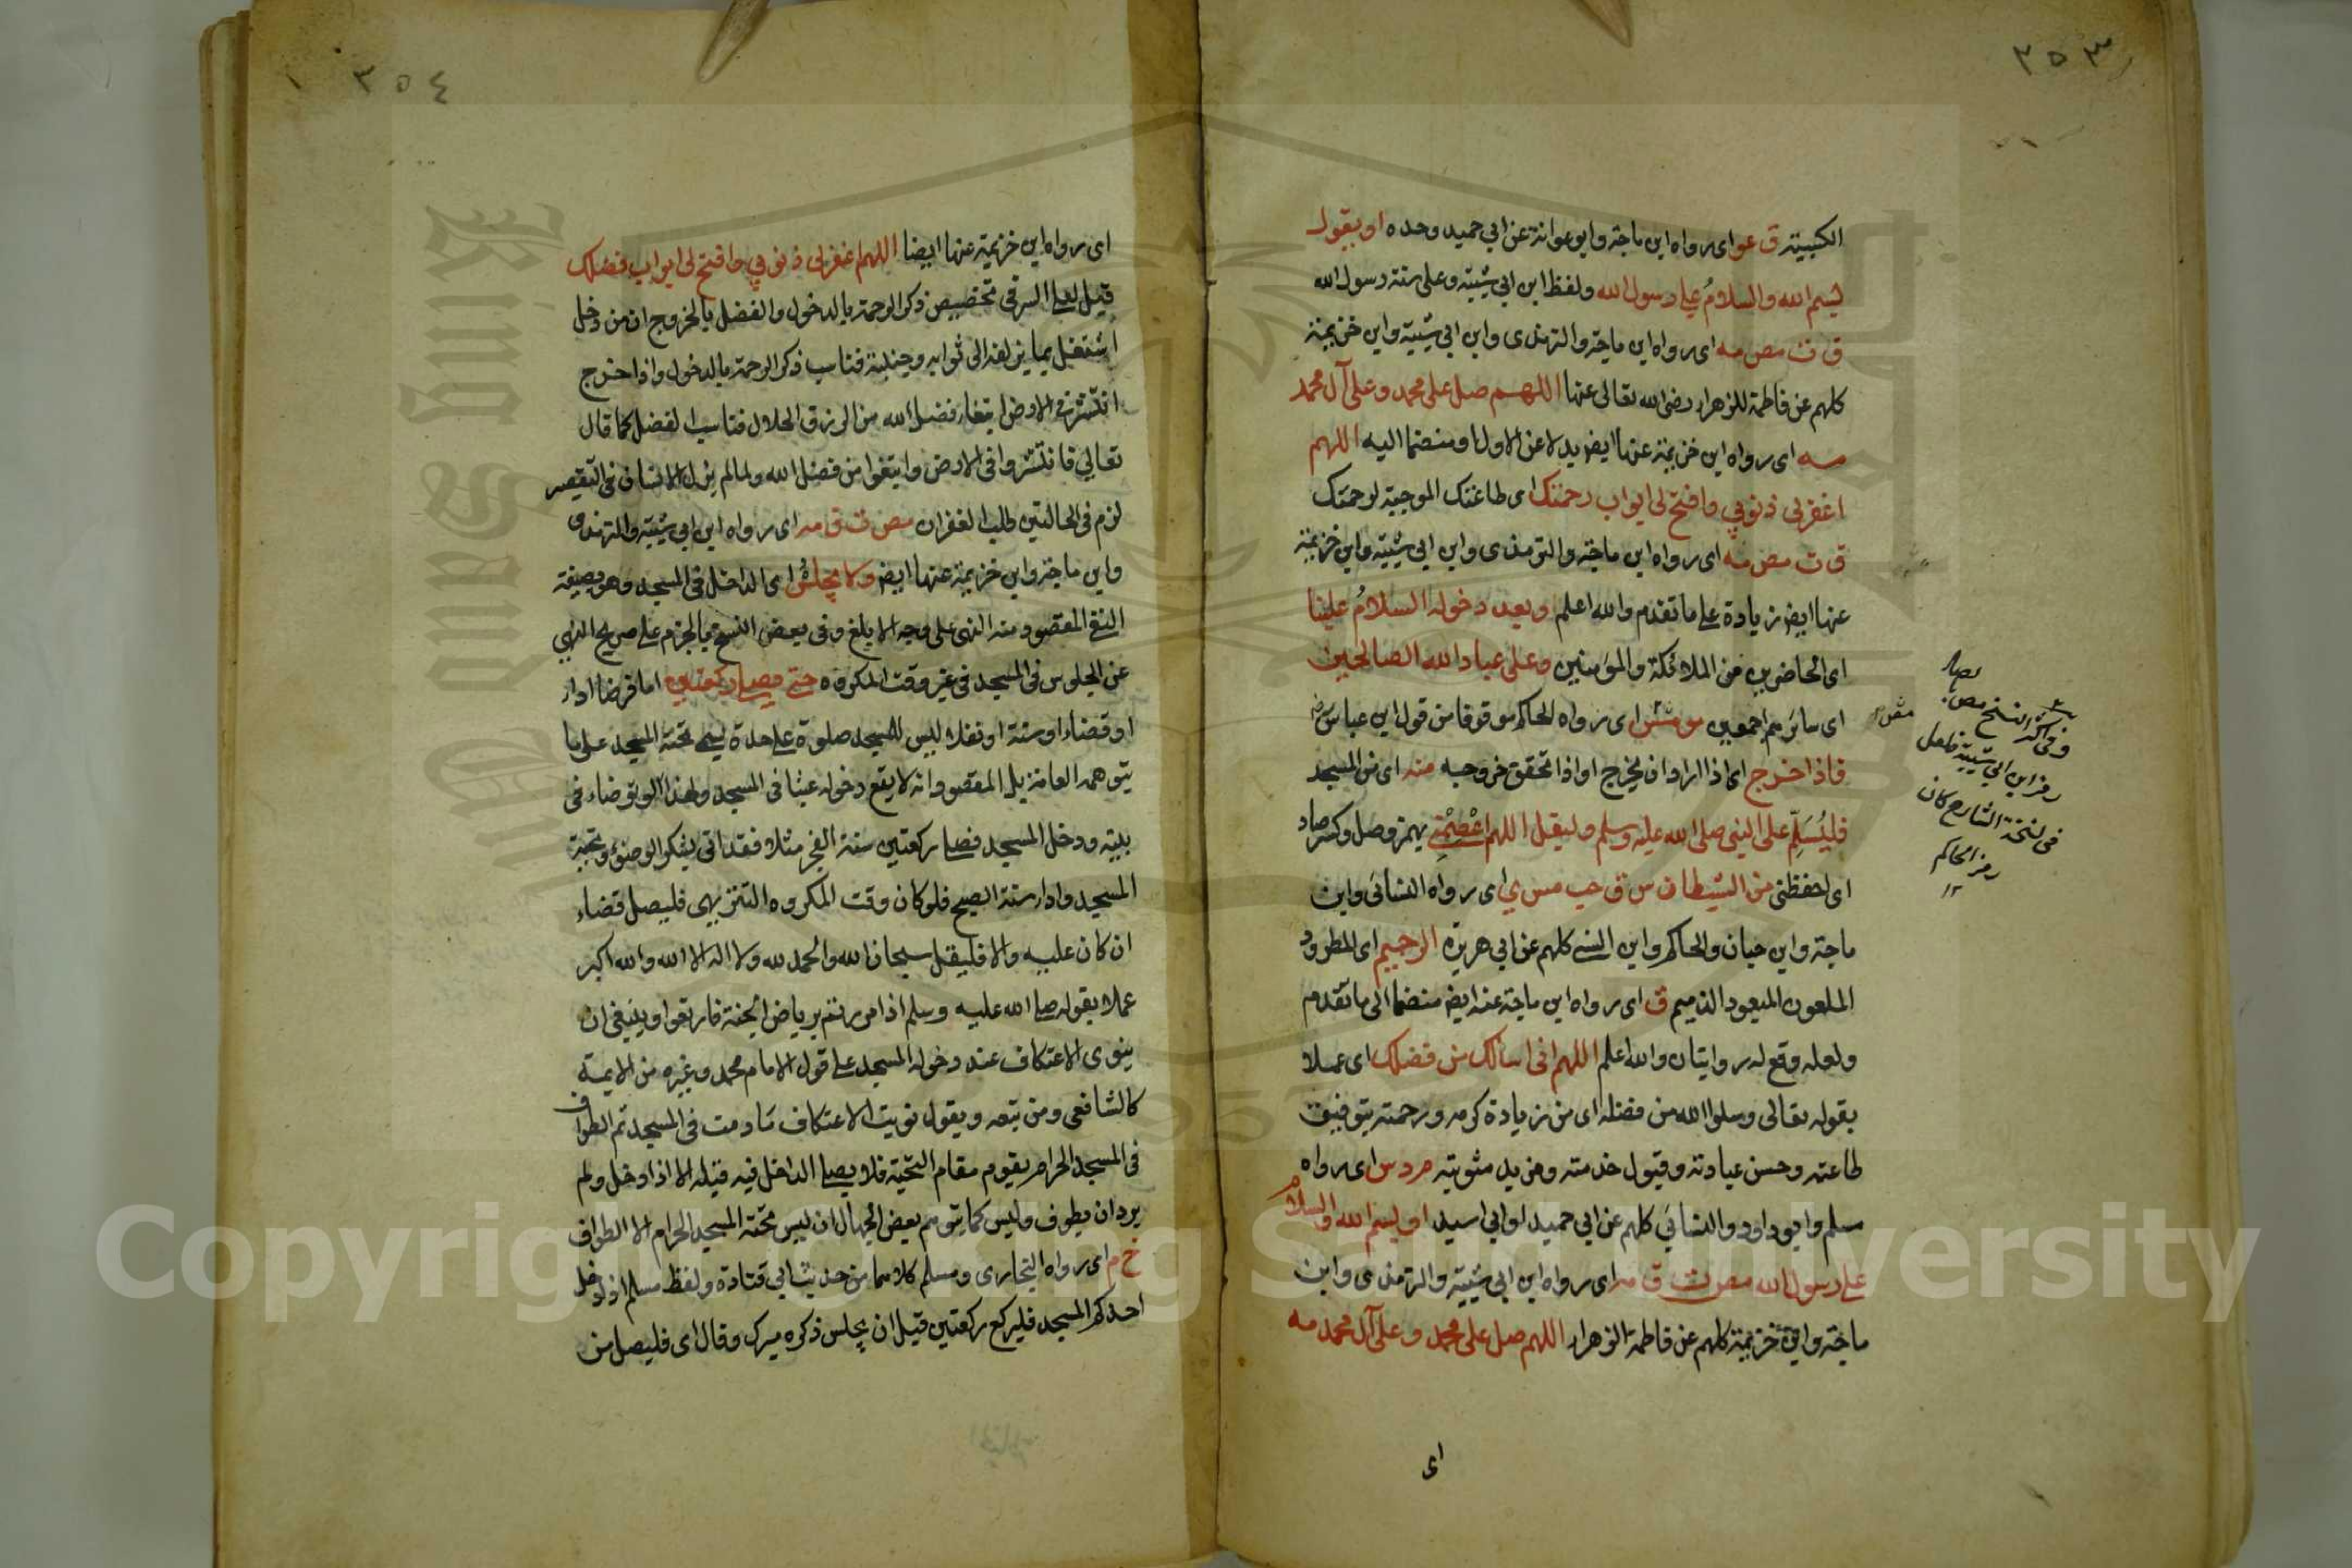 ٢٥٣
الكبيته ق عو اى رواه ابن ماجة وابو عوانة عن ابي حميد وحده او يقول
بسم الله والسلام علي رسول الله ولفظ ابن ابي شيبة وعلى سنة رسول الله
ق ت مص مه اى رواه ابن ماجة والترمذى وابن ابي شيبة وابن خزيمة
كلهم عن فاطمة الزهراء رضى الله تعالى عنها اللهم صل على محمد وعلى آل محمد
مه اى رواه ابن خزيمة عنها ايض بدلا عن الاول او منضما اليه اللهم
اغفرلى ذنوبي وافتح لى ابواب رحمتك اى طاعتك الموجبة لرحمتك
ق ت مص مه اى رواه ابن ماجة والترمذى وابن ابي شيبة وابن خزيمة
عنها ايض زيادة على ما تقدم والله اعلم وبعد دخوله السلام علينا
اى الحاضرين من الملائكة والمؤمنين وعلى عباد الله الصالحين
اى سائرهم اجمعين مو مس اى رواه الحاكم موقوفا من قول ابن عباس رض
فاذا خرج اى اذا اراد ان يخرج او اذا تحقق خروجه منه اى من المسجد
فليُسَلِّم على النبى صلى الله عليه وسلم وليقل اللهم اعْصِمْنِي بهمز وصل وكسر صاد
اى احفظنى من الشيطان س ق حب مس ي اى رواه النسائى وابن
ماجة وابن حبان والحاكم وابن السنى كلهم عن ابي هريرة الرجيم اى المطرود
الملعون المبعود الذميم ق اى رواه ابن ماجة عنه ايض منضما الى ما تقدم
ولعله وقع له روايتان والله اعلم اللهم انى اسالك من فضلك اى عملا
بقوله تعالى وسلوا الله من فضله اى من زيادة كرمه ورحمته بتوفيق
طاعته وحسن عبادته وقبول خدمته ومزيد مثوبته م د س اى رواه
مسلم وابو داود والنسائى كلهم عن ابي حميد او ابي اسيد او بسم الله والسلام
على رسول الله مص ت ق مه اى رواه ابن ابي شيبة والترمذى وابن
ماجة وابن خزيمة كلهم عن فاطمة الزهراء اللهم صل على محمد وعلى آل محمد مه
اى
وفى اكثر النسخ مص
رمز ابن ابي شيبة فلعل
فى نسخة الشارح كان
رمز الحاكم
١٢
٢٥٤
اى رواه ابن خزيمة عنها ايضا اللهم اغفرلى ذنوبي وافتح لى ابواب فضلك
قيل لعل السر فى تخصيص ذكر الرحمة بالدخول والفضل بالخروج ان من دخل
اشتغل بما يزلفه الى ثوابه وجنبته فناسب ذكر الرحمة بالدخول واذا خرج
انتشر فى الارض ابتغاء فضل الله من الرزق الحلال فناسب الفضل كما قال
تعالي فانتشروا فى الارض وابتغوا من فضل الله ولما لم يزل الانسان فى التقصير
لزم فى الحالتين طلب الغفران مص ت ق مه اى رواه ابن ابي شيبة والترمذى
وابن ماجة وابن خزيمة عنها ايض ولا يجلسُ اى الداخل فى المسجد وهو بصيغة
النفى المقصود منه النهى على وجه الابلغ وفى بعض النسخ بالجزم على صريح النهي
عن الجلوس فى المسجد فى غير وقت المكروه حتى يصلى ركعتين اما فرضا اداء
او قضاء او سنة او نفلا ليس للمسجد صلوة على حدة يسمى تحية المسجد على ما
يتوهمه العامة بل المقصود انه لا يقع دخوله عبثا فى المسجد ولهذا لو توضاء فى
بيته ودخل المسجد فصلى ركعتين سنة الفجر مثلا فقد اتى بشكر الوضوء وتحية
المسجد واداء سنة الصبح فلو كان وقت المكروه التنزيهى فليصل قضاء
ان كان عليه والا فليقل سبحان الله والحمد لله ولا اله الا الله والله اكبر
عملا بقوله صلى الله عليه وسلم اذا مررتم برياض الجنة فارتعوا وينبغى ان
ينوى الاعتكاف عند دخوله المسجد على قول الامام محمد وغيره من الايمة
كالشافعى ومن تبعه ويقول نويت الاعتكاف ما دمت فى المسجد ثم الطواف
فى المسجد الحرام يقوم مقام التحية فلا يصلى الداخل فيه قبله الا اذا دخل ولم
يرد ان يطوف وليس كما يتوهم بعض الجهال ان ليس تحية المسجد الحرام الا الطواف
خ م اى رواه البخارى ومسلم كلاهما من حديث ابي قتادة ولفظ مسلم اذا دخل
احدكم المسجد فليركع ركعتين قبل ان يجلس ذكره ميرك وقال اى فليصل من
King Saud University
Copyright © King Saud University